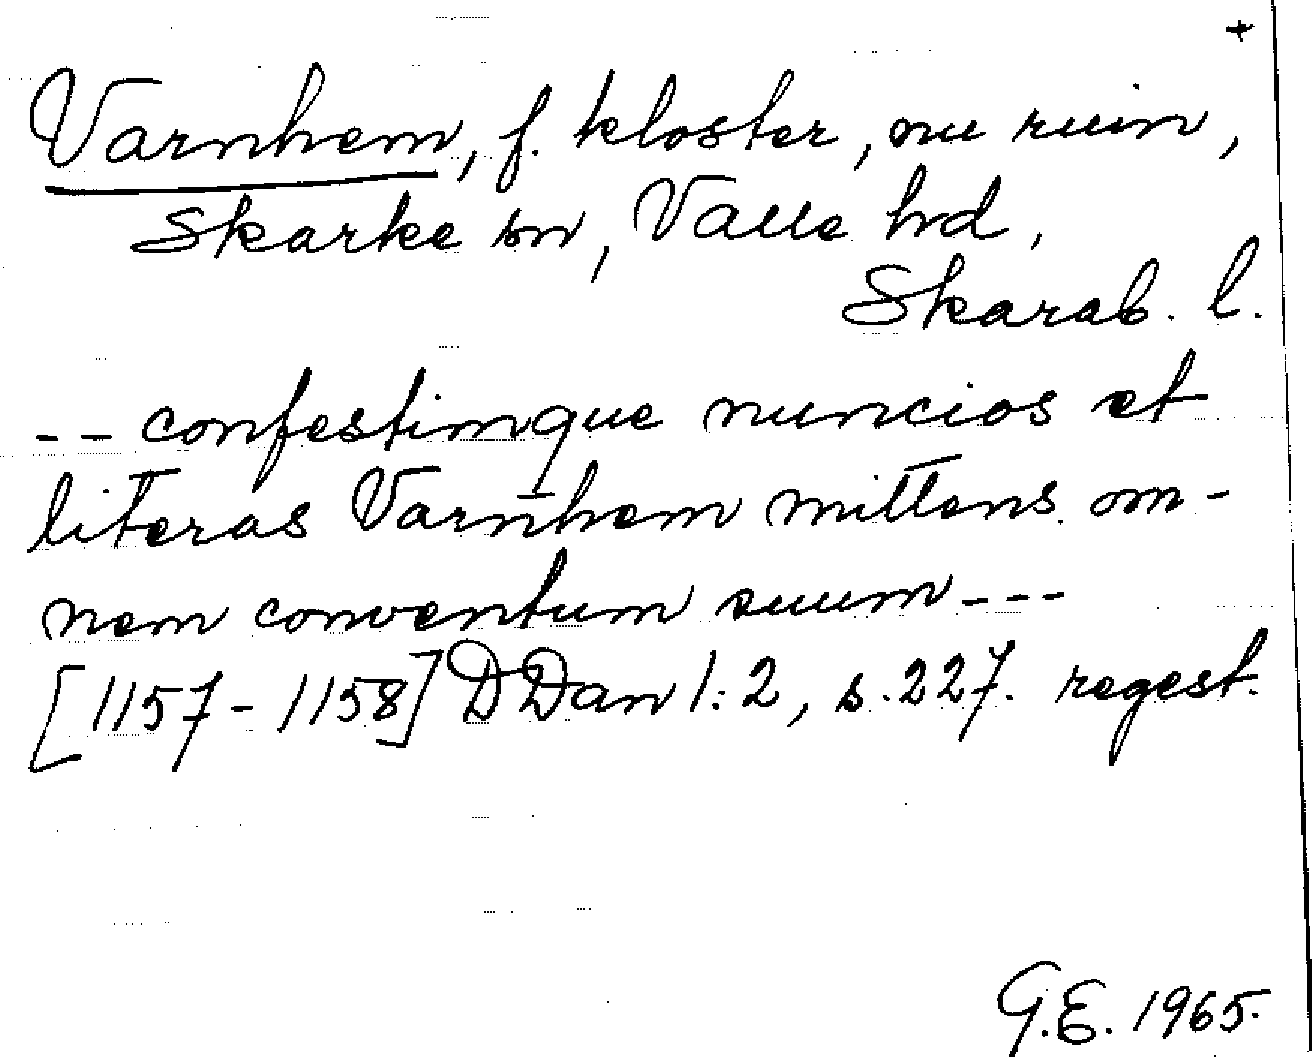 +
Varnhem, f. kloster, nu ruin,
Skarke sn, Valle hd,
Skarab. l.
-- confestimque nuncios et
literas Varnhem mittens om-
nem conventum suum ---
[1157-1158] DDan 1:2, s.227. regest.
G.E. 1965.